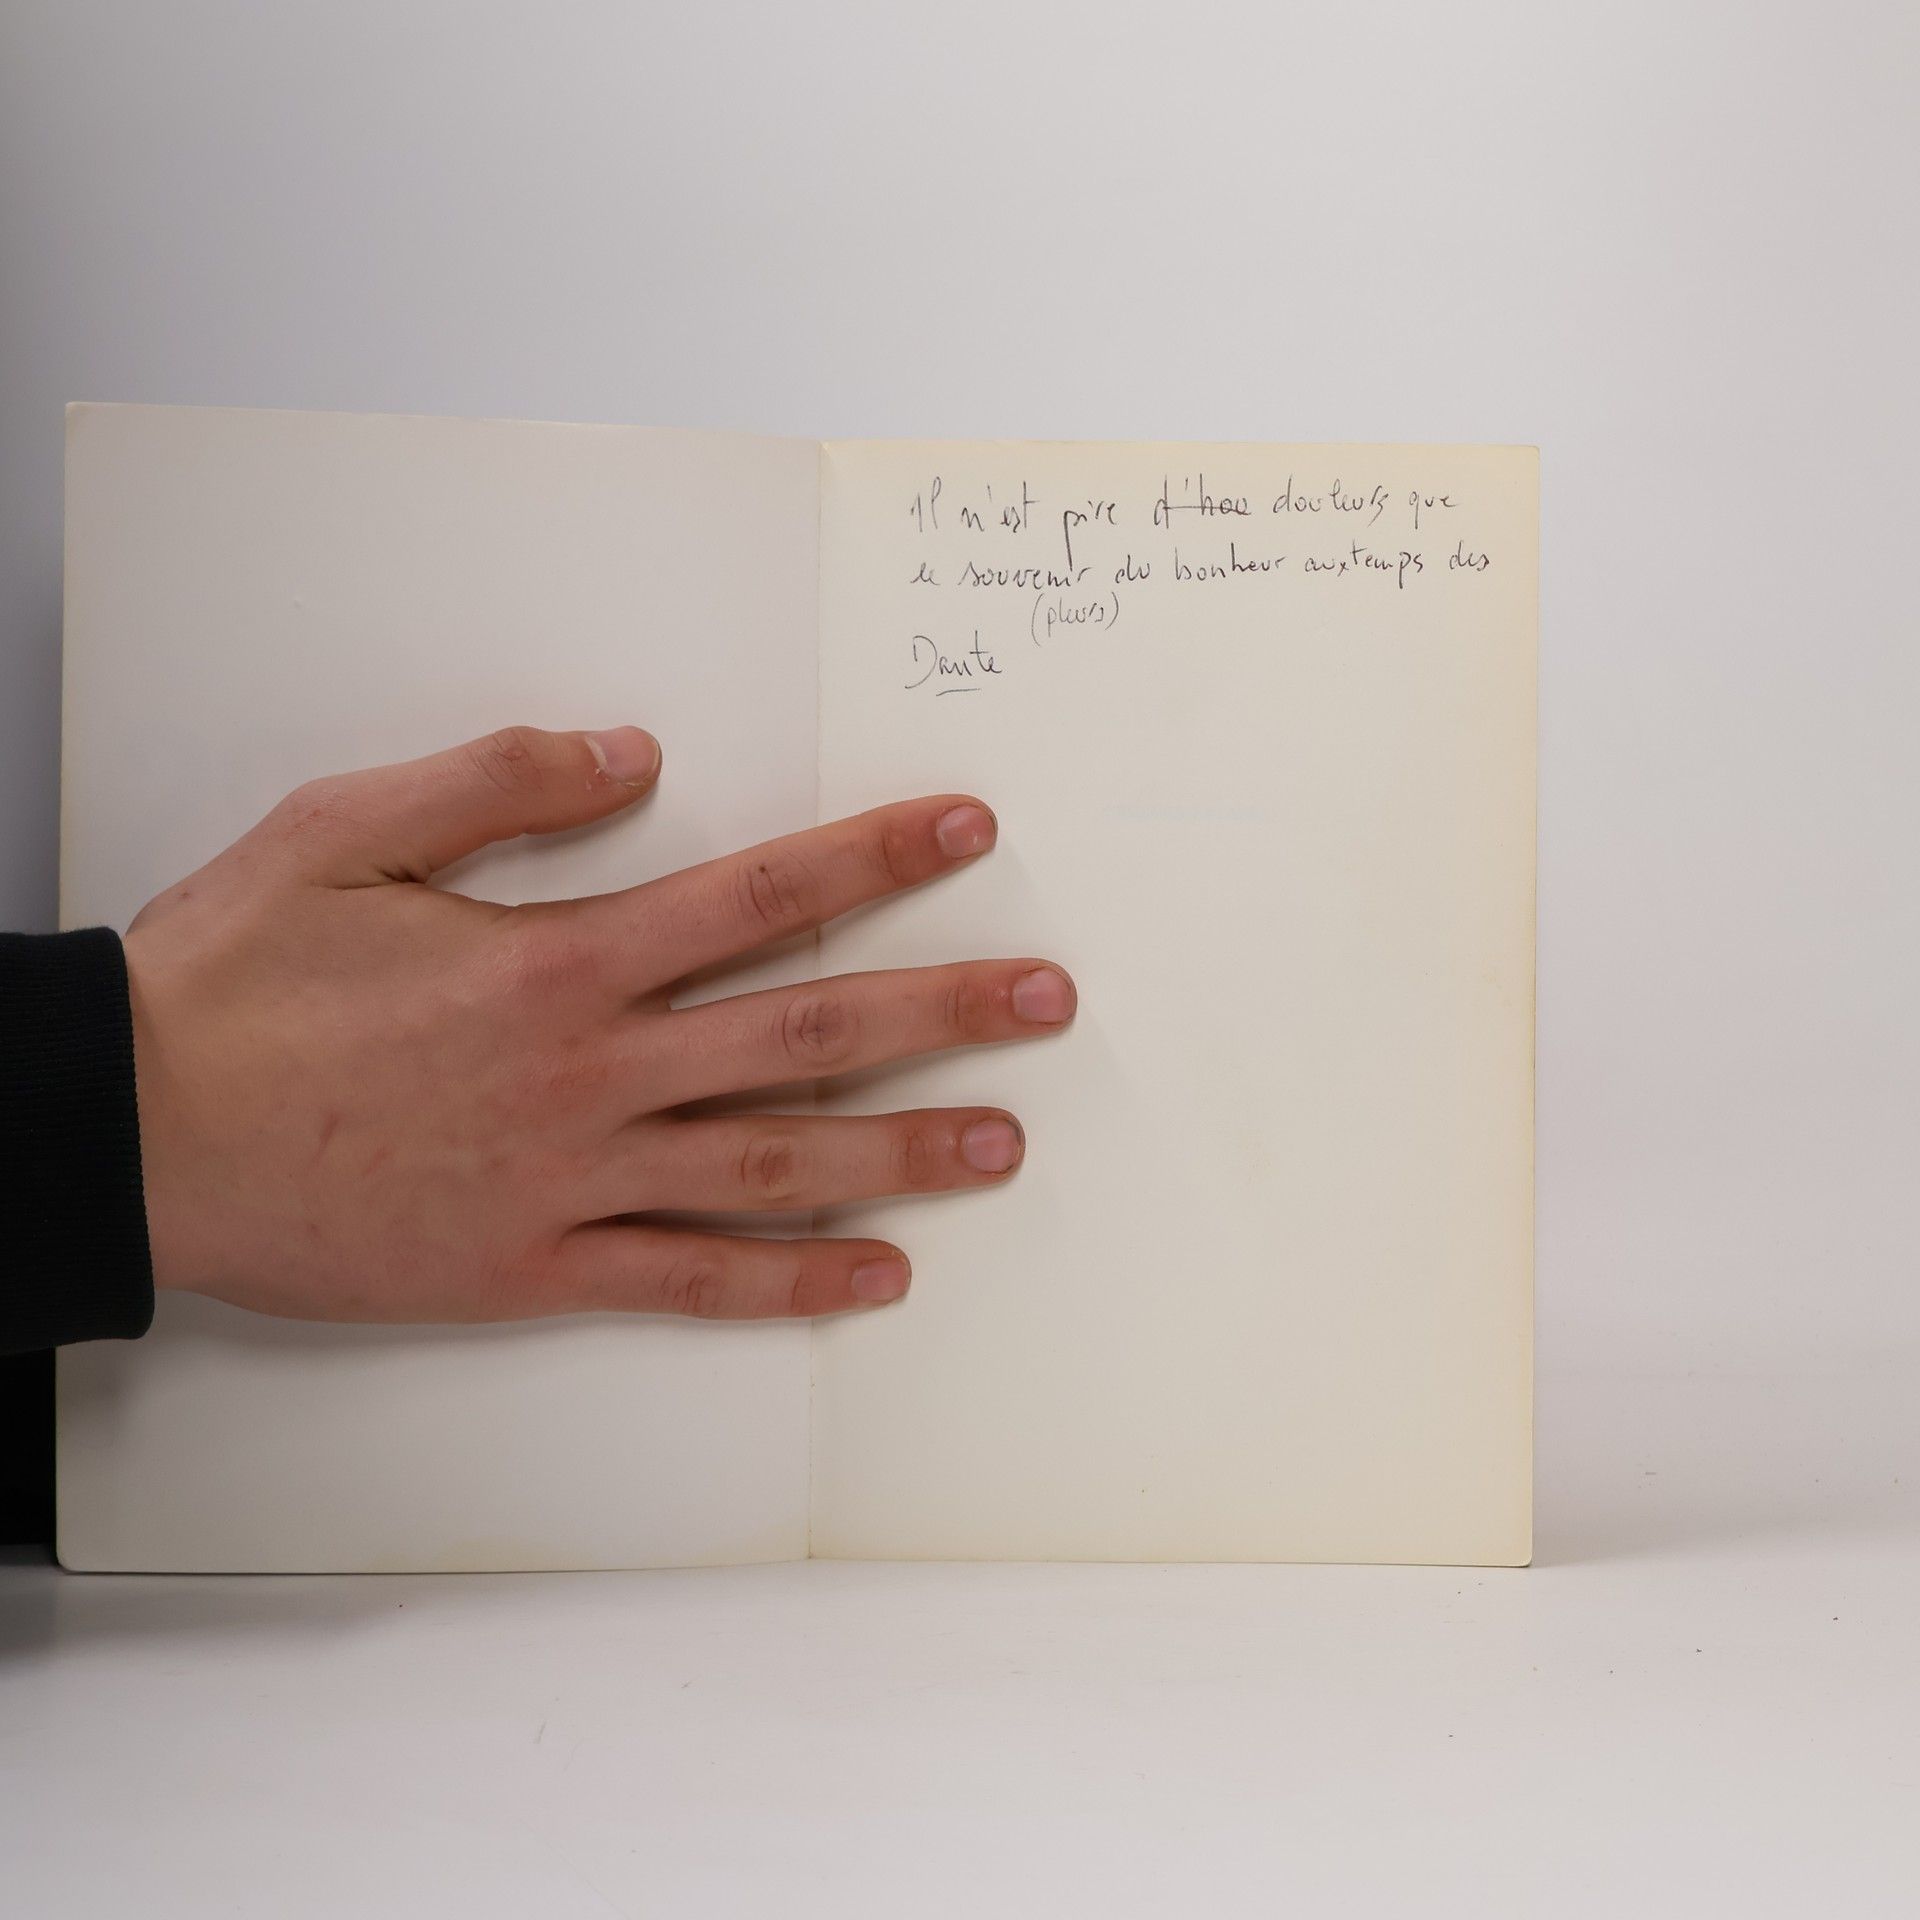 Il n'est pire d'hou douleurs que
le souvenir du bonheur aux temps des
(pleurs)
Dante